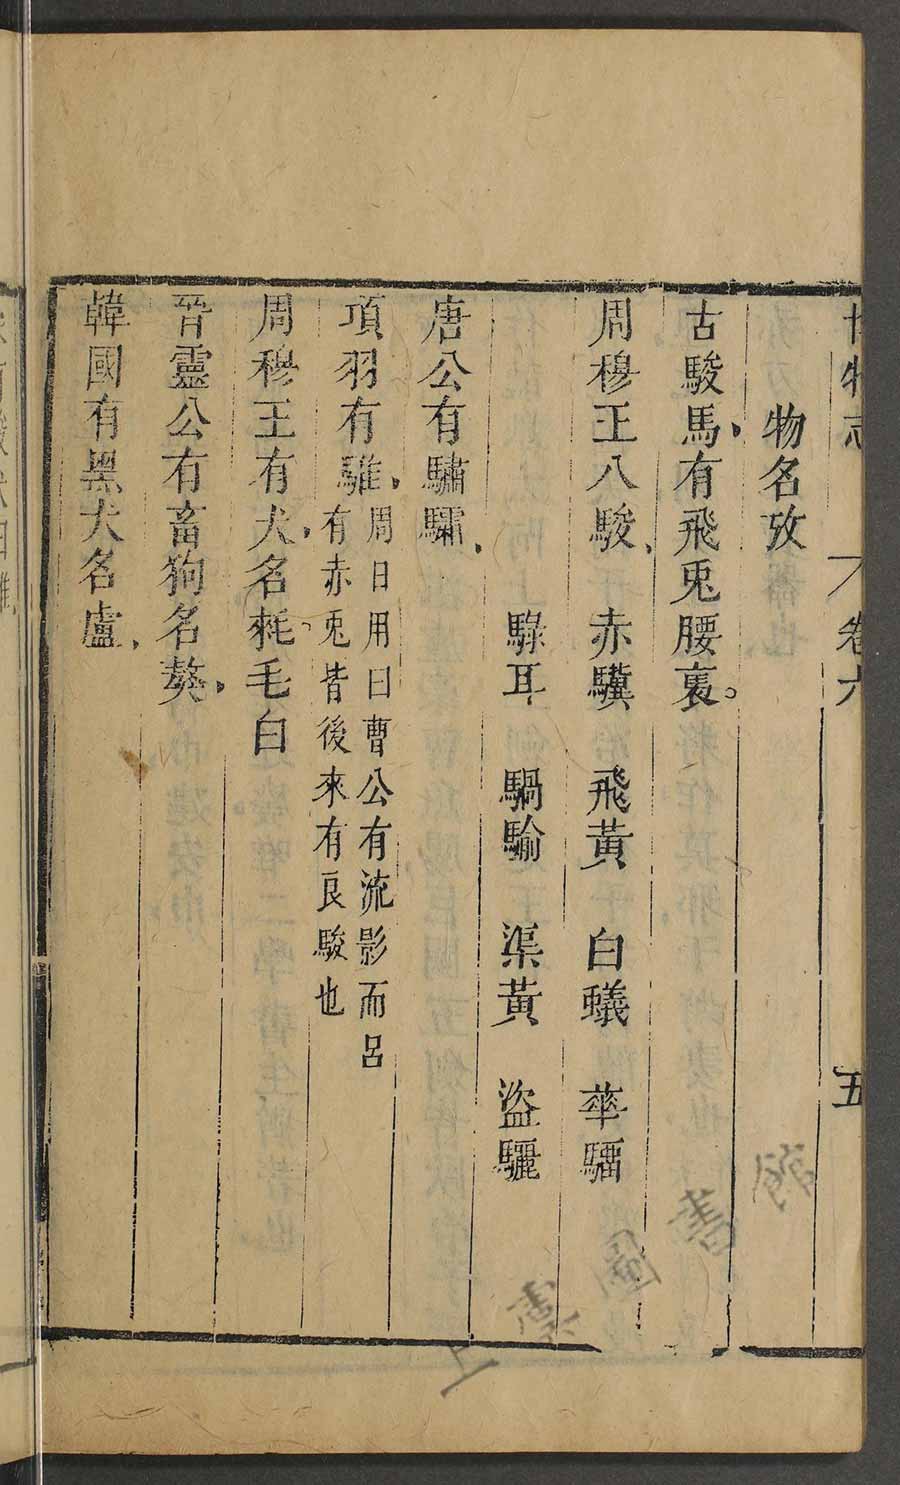 博物志
卷六
五
物名攷
古駿馬有飛兎腰褭。
周穆王八駿、赤驥 飛黃 白蟻 華騮
騄耳 騧騟 渠黃 盜驪
唐公有驌驦、
項羽有騅、周日用曰曹公有流影而呂
有赤兎皆後來有良駿也
周穆王有犬、名𣬠毛白
晉靈公有畜狗名獒、
韓國有黑犬名盧、